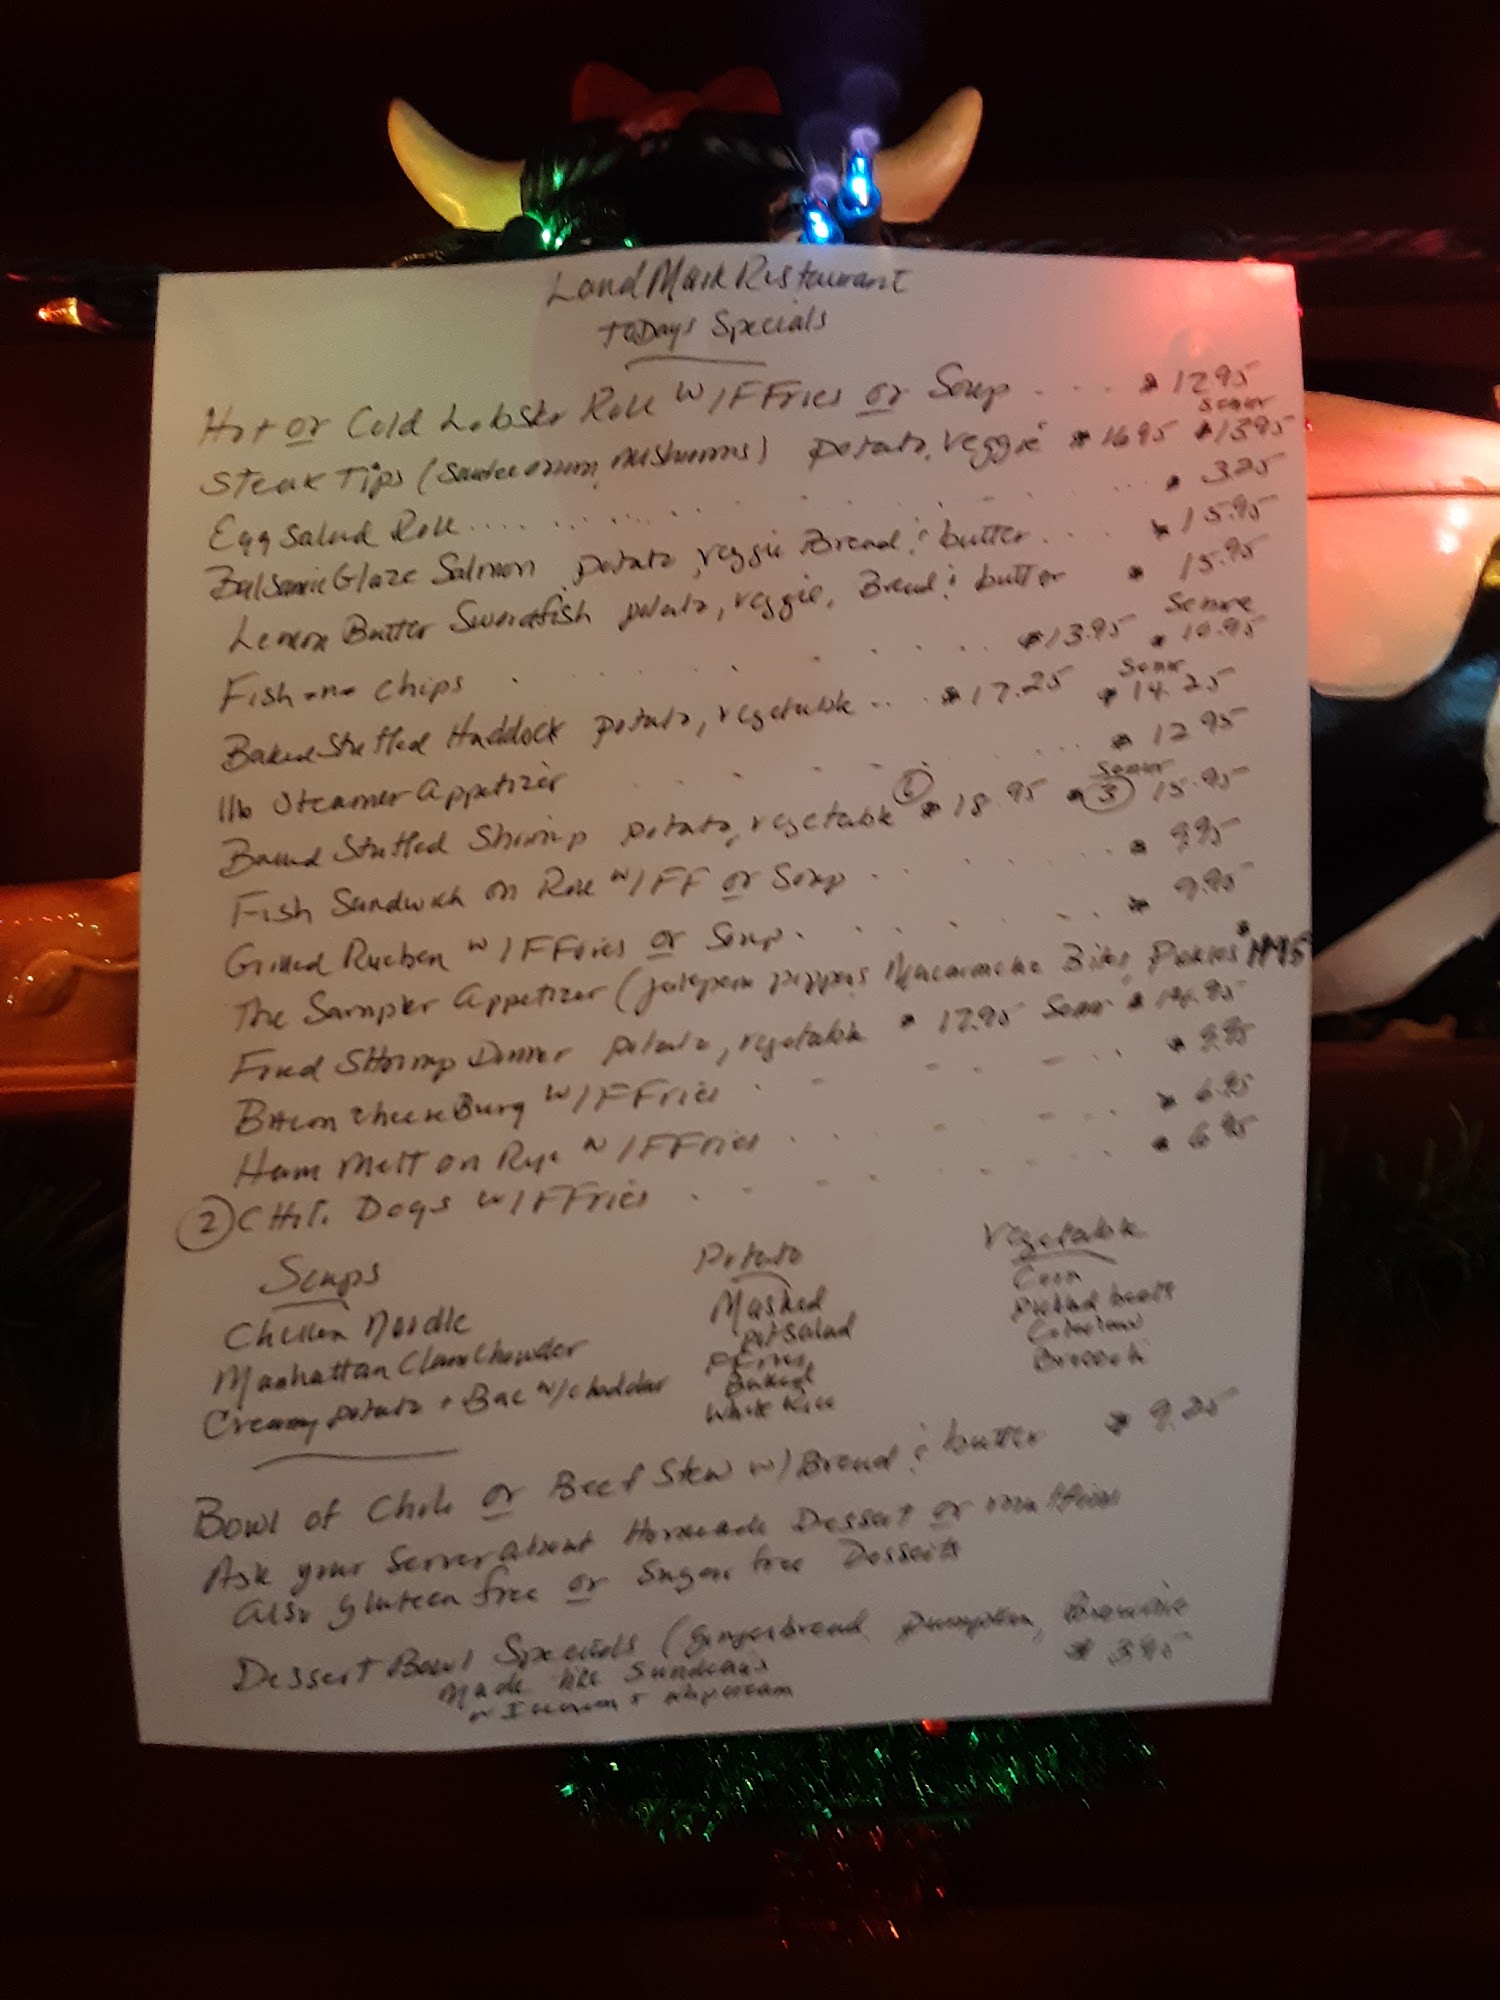 LandMark Restaurant
toDays Specials
Hot or Cold Lobster Roll W/FFries or Soup .... $12.95
Senior
Steak Tips (Sautee onion, mushrooms) potato, veggie $16.95 $13.95
Egg Salad Roll .......... $3.25
Balsamic Glaze Salmon potato, veggie Bread & butter .... $15.95
Lemon Butter Swordfish potato, veggie, Bread & butter $15.95
Senior
Fish-n-Chips . . . . . . . . $13.95 $10.95
Senior
Baked Stuffed Haddock potato, vegetable ... $17.25 $14.25
1lb Steamer Appetizer . . . . . . . $12.95
Senior
Baked Stuffed Shrimp potato, vegetable (6) $18.95 $(3) 15.95
Fish Sandwich on Roll w/FF or Soup . . . . . $9.95
Grilled Rueben w/FFries or Soup . . . . . $9.95
The Sampler Appetizer (jalapeno poppers, Bites, Pickles
Fried Shrimp Dinner potato, vegetable $17.95 Senior $14.95
Bacon cheese Burg w/FFries . . . . . $9.95
Ham melt on Rye w/FFries . . . . . $6.95
(2) C Hot. Dogs w/FFries . . . . . . $6.95
Soups Potato Vegetable
Chicken Noodle Mashed Corn
Manhattan Clam Chowder pot Salad Pickled beets
Creamy potato + Bac w/cheddar FFries Coleslaw
Baked Broccoli
White Rice
Bowl of Chili or Beef Stew w/Bread & butter $9.25
Ask your Server about Homemade Dessert or muffins
also gluteen free or Sugar free Desserts
Dessert Bowl Specials (gingerbread, Pumpkin, Brownie
Made like Sundeaus $3.95
w Icecream + whipcream